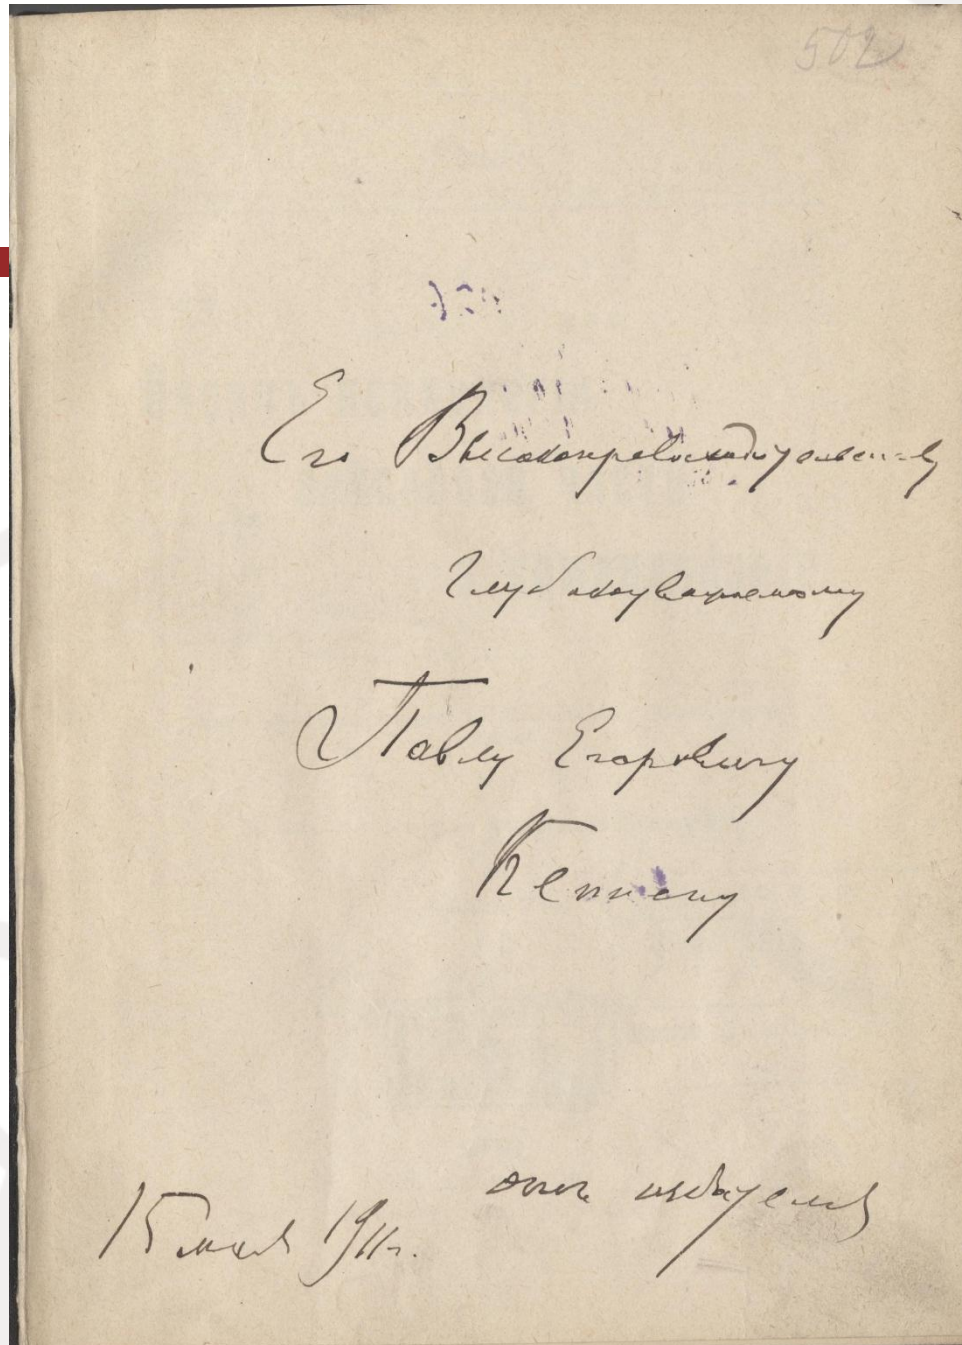 502
Его Высокопревосходительству
Глубокоуважаемому
Павлу Егоровичу
Кеппену
отъ издателя
15 мая 1911 г.